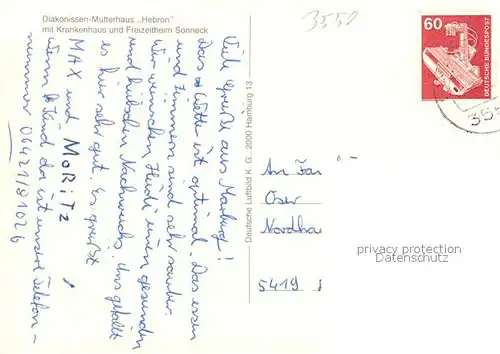 Diakonissen-Mutterhaus „Hebron"
mit Krankenhaus und Freizeitheim Sonneck
3550
60
DEUTSCHE BUNDESPOST
355
Viel Grüße aus Marburg!
Das Wette ist optimal. Das essen
und Zimmern sind sehr sauber.
Wir wünschen Heidi einen gesunden
und hübschen Nachwuchs. Uns gefällt
es hier sehr gut. Es grüßt
MAX und MoRiTz
wenn Kind da ist unsere Telefon-
nummer 06421/81026
Deutsche Luftbild K. G., 2000 Hamburg 13
An Fam
Oser
Nordha
5419
privacy protection
Datenschutz